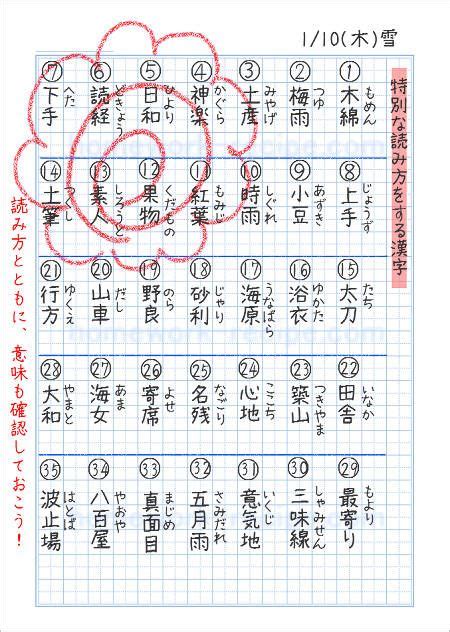 1/10(木)雪
特別な読み方をする漢字
①木綿 もめん
②梅雨 つゆ
③土産 みやげ
④神楽 かぐら
⑤日和 ひより
⑥読経 どきょう
⑦下手 へた
⑧上手 じょうず
⑨小豆 あずき
⑩時雨 しぐれ
⑪紅葉 もみじ
⑫果物 くだもの
⑬素人 しろうと
⑭土筆 つくし
⑮太刀 たち
⑯浴衣 ゆかた
⑰海原 うなばら
⑱砂利 じゃり
⑲野良 のら
⑳山車 だし
㉑行方 ゆくえ
㉒田舎 いなか
㉓築山 つきやま
㉔心地 ここち
㉕名残 なごり
㉖寄席 よせ
㉗海女 あま
㉘大和 やまと
㉙最寄り もより
㉚三味線 しゃみせん
㉛意気地 いくじ
㉜五月雨 さみだれ
㉝真面目 まじめ
㉞八百屋 やおや
㉟波止場 はとば
読み方とともに、意味も確認しておこう!